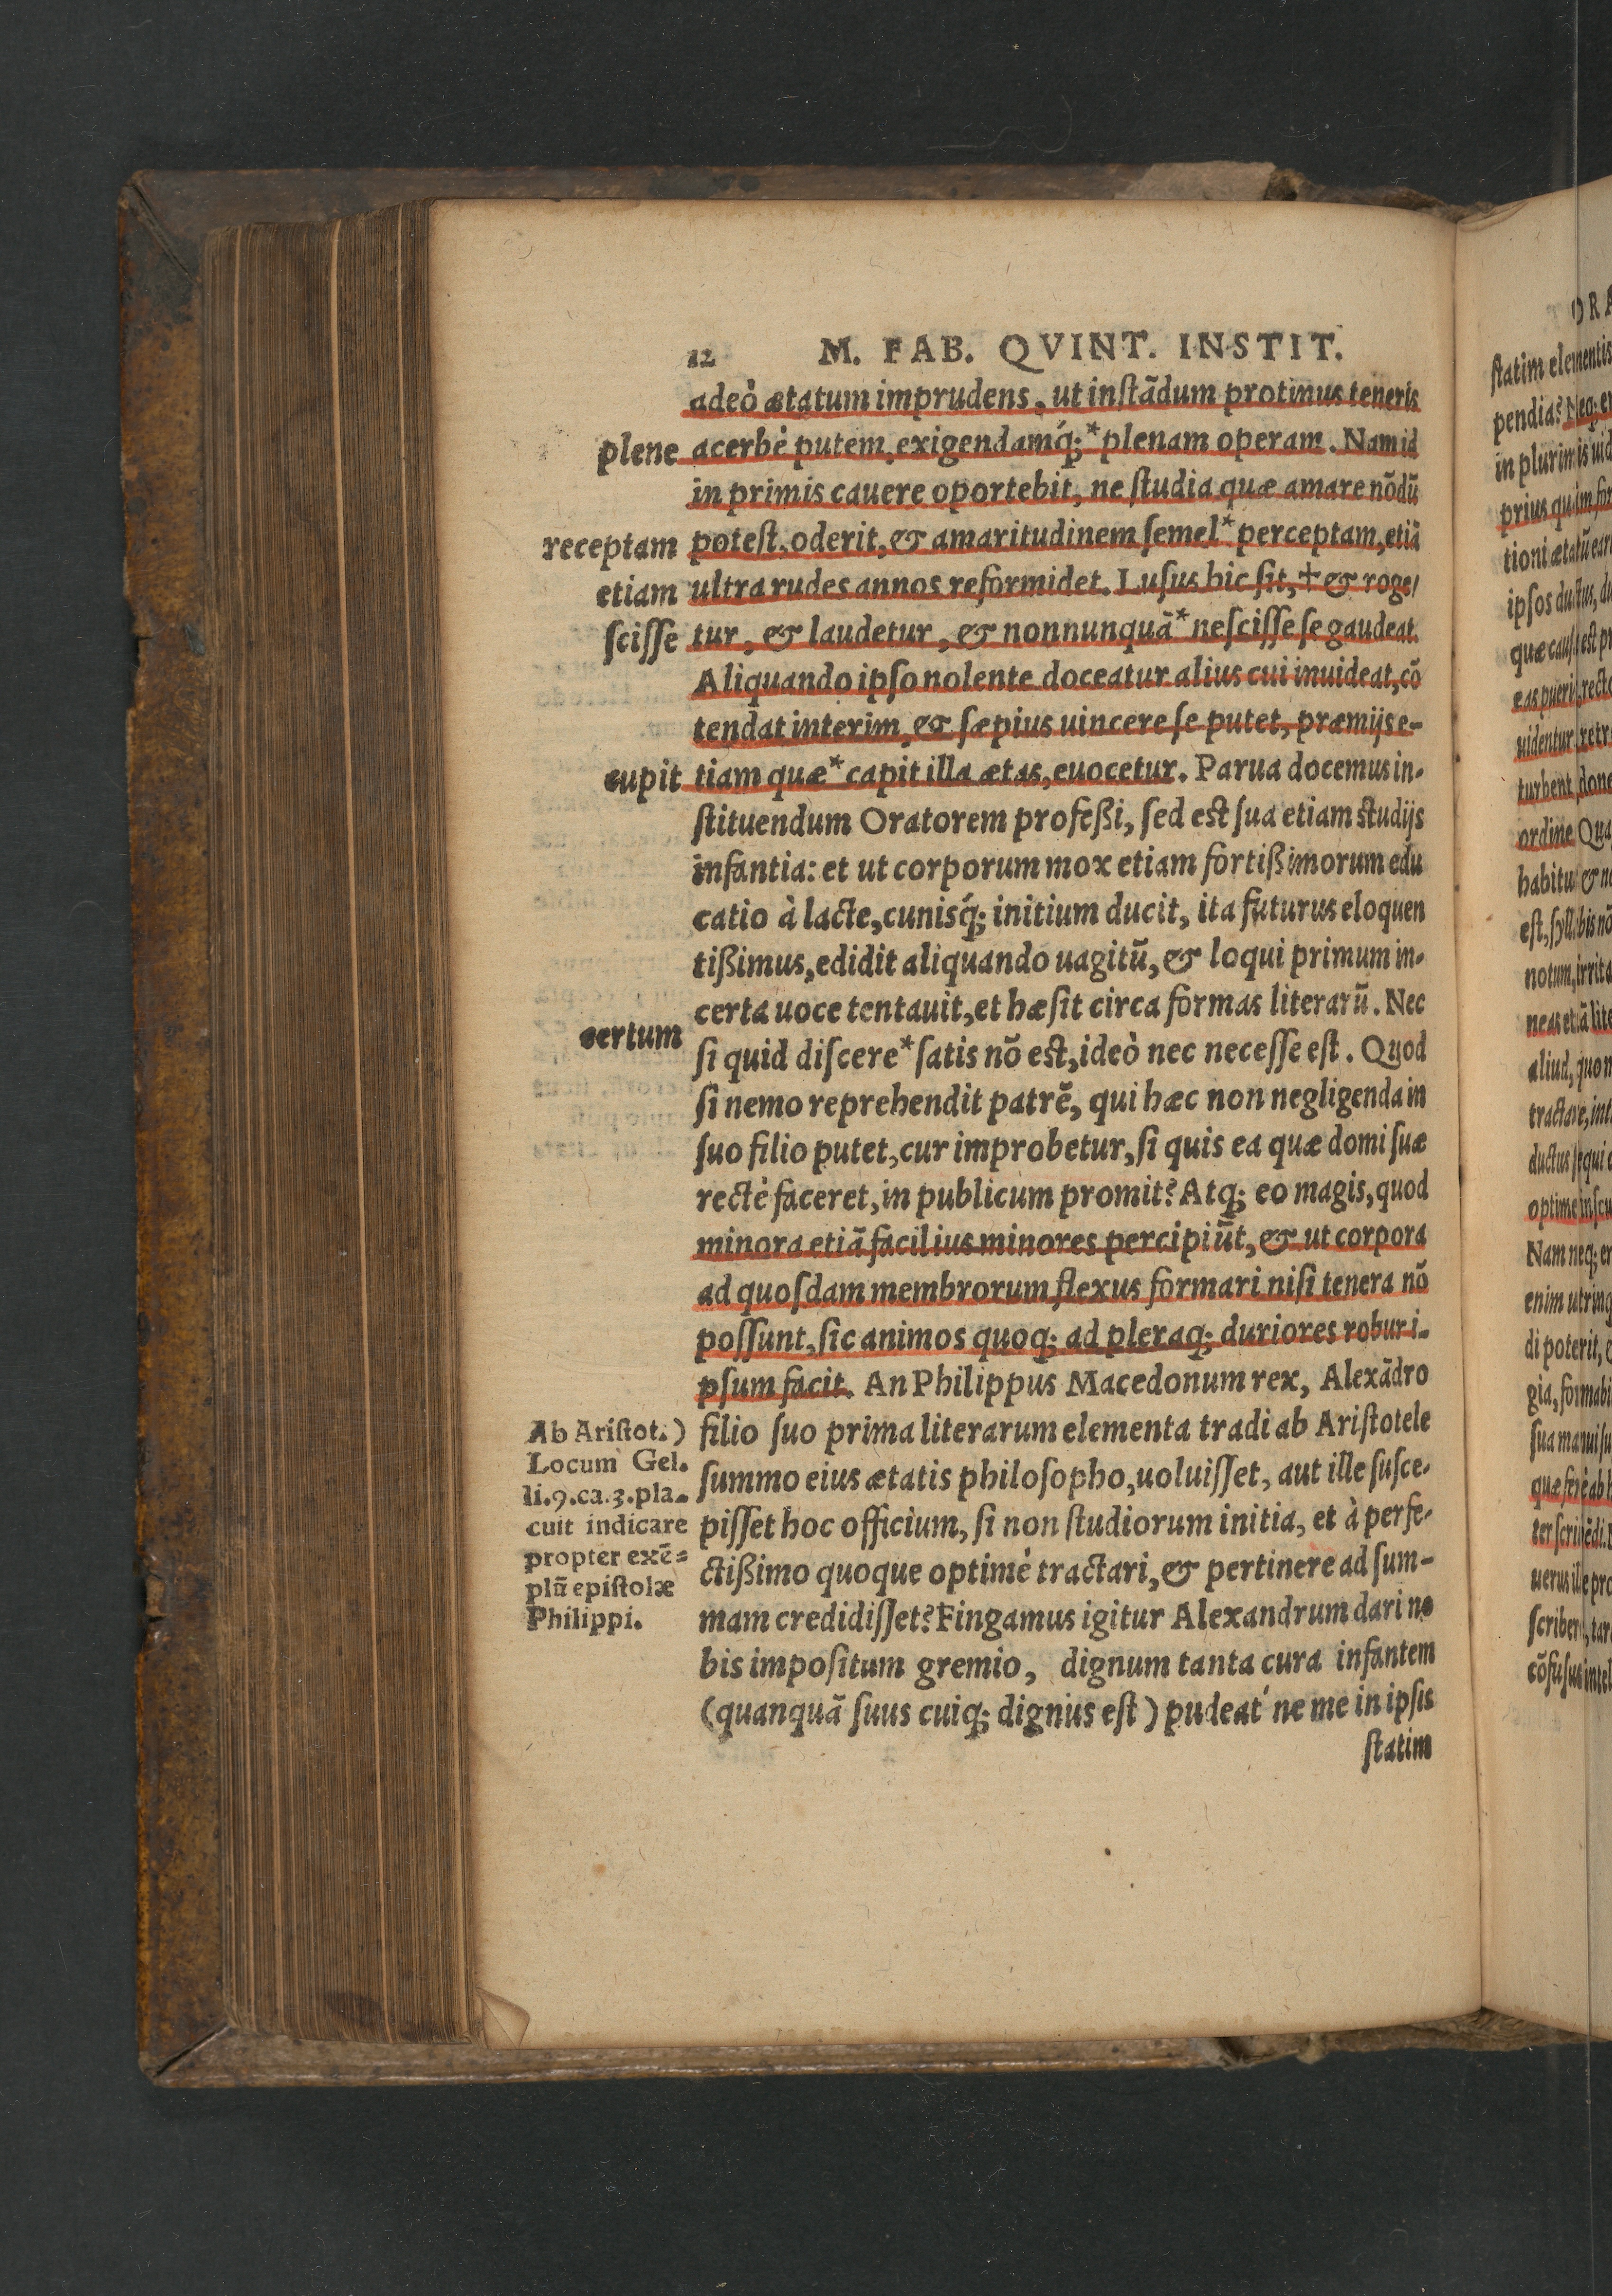 12 M. FAB. QVINT. INSTIT.
adeò ætatum imprudens, ut instãdum protinus teneris
plene
acerbè putem, exigendamq́; *plenam operam. Nam id
in primis cauere oportebit, ne ſtudia quæ amare nõdũ
receptam
poteſt, oderit, & amaritudinem ſemel* perceptam, etiã
etiam
ultra rudes annos reformidet. Luſus hic ſit, † & roge/
ſciſſe
tur, & laudetur, & nonnunquã* neſciſſe ſe gaudeat.
Aliquando ipſo nolente doceatur alius cui inuideat, cõ
tendat interim, & ſæpius uincere ſe putet, præmijs e-
cupit
tiam quæ* capit illa ætas, euocetur. Parua docemus in-
ſtituendum Oratorem profeßi, ſed eſt ſua etiam ſtudijs
infantia: et ut corporum mox etiam fortißimorum edu
catio à lacte, cunisq́; initium ducit, ita futurus eloquen
tißimus, edidit aliquando uagitũ, & loqui primum in-
certa uoce tentauit, et hæſit circa formas literarũ. Nec
certum
ſi quid diſcere* ſatis nõ eſt, ideò nec neceſſe eſt. Quod
ſi nemo reprehendit patrẽ, qui hæc non negligenda in
ſuo filio putet, cur improbetur, ſi quis ea quæ domi ſuæ
rectè faceret, in publicum promit? Atq; eo magis, quod
minora etiã facilius minores percipiũt, & ut corpora
ad quoſdam membrorum flexus formari niſi tenera nõ
poſſunt, ſic animos quoq; ad pleraq; duriores robur i-
pſum facit. An Philippus Macedonum rex, Alexãdro
filio ſuo prima literarum elementa tradi ab Ariſtotele
ſummo eius ætatis philoſopho, uoluiſſet, aut ille ſuſce-
piſſet hoc officium, ſi non ſtudiorum initia, et à perfe-
ctißimo quoque optimè tractari, & pertinere ad ſum-
mam credidiſſet? Fingamus igitur Alexandrum dari no
bis impoſitum gremio, dignum tanta cura infantem
(quanquã ſuus cuiq; dignus eſt) pudeat́ ne me in ipſis
ſtatim
Ab Ariſtot.)
Locum Gel.
li.9.ca.3.pla-
cuit indicare
propter exẽ=
plũ epiſtolæ
Philippi.
ORA
ſtatim elementis
pendia? Neq; e
in plurimis uid
prius qu im for
tioni ætatũ ear
ipſos ductus, du
quæ cauſa eſt pr
eas pueris, recto
uidentur, retr
turbent, done
ordine Qua
habitu & no
eſt, ſyll bis nõ
notum, irrita
neas et ã lite
aliud, quo m
tractare, int
ductus ſ qui
optime inſcu
Nam neq; er
enim utrinq
di poterit, e
gia, formabi
ſua manui ſu
quæ ferè ab h
ter ſcribẽdi.
uerus ille pro
ſcribere, tar
cõfuſus intel